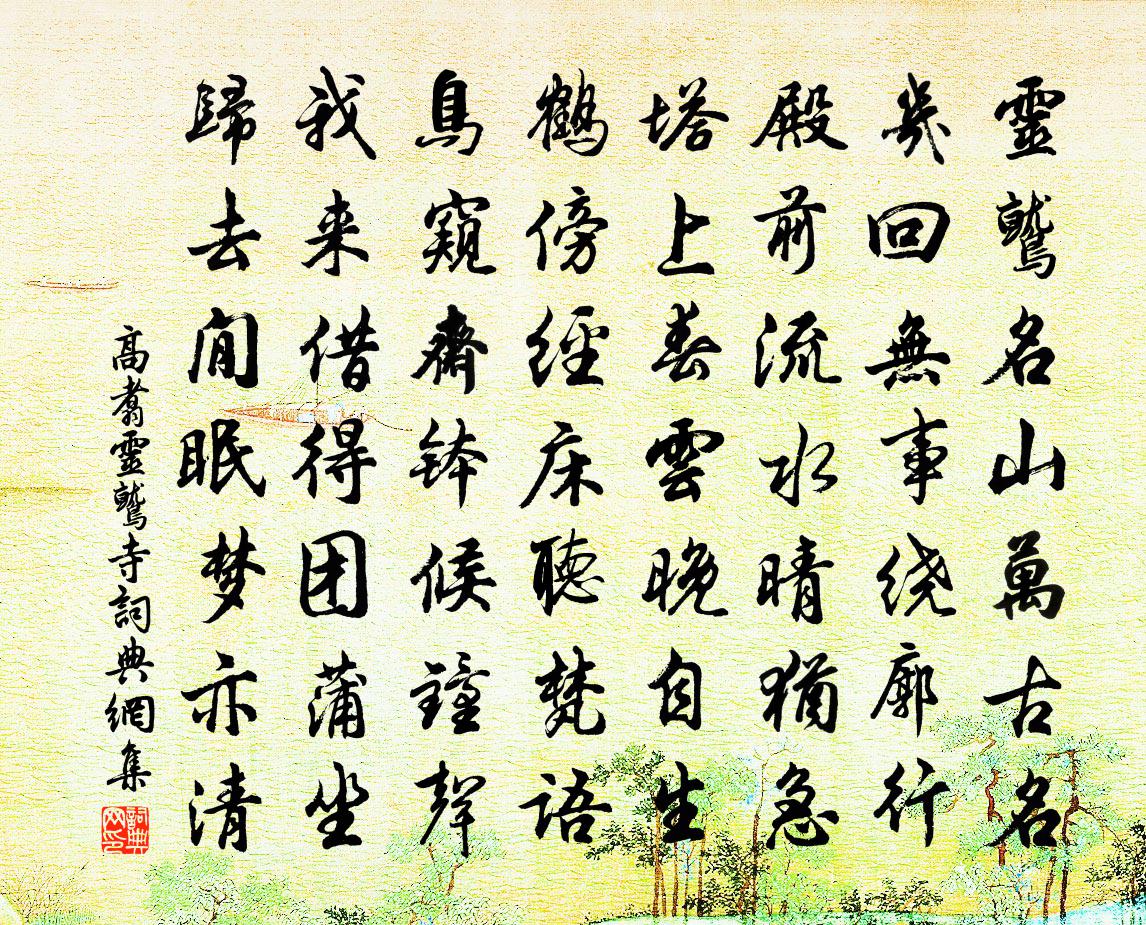 靈鷲名山萬古名
幾回無事绕廓行
殿前流水晴猶急
塔上春雲晚自生
鶴傍經床聽梵语
鳥窺齋鉢候鐘聲
我来借得团蒲坐
歸去閒眠梦亦清
高翥靈鷲寺詞典網集
詞典网印